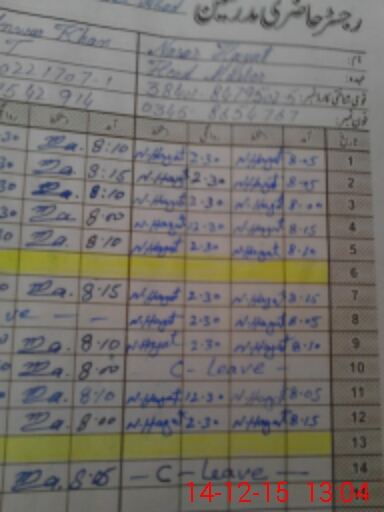 رجسٹر حاضری مدرسین
Khan Naser Hayat
T Head Master
0221707-1
0345-8654767
Da. 8:10 N.Hayat 2-30 N.Hayat 8-05 1
Da. 8:15 N.Hayat 2-30 N.Hayat 8-05 2
Da. 8:10 N.Hayat 2-30 N.Hayat 8-00 3
Da 8-00 N.Hayat 12-30 N.Hayat 8-15 4
Da. 8:10 N.Hayat 2-30 N.Hayat 8-10 5
6
Da. 8-15 N.Hayat 2-30 N.Hayat 8-15 7
ve — — N.Hayat 2-30 N.Hayat 8-05 8
Da. 8-10 N.Hayat 2-30 N.Hayat 8-10 9
Da. 8-00 C-Leave - 10
Da. 8-10 N.Hayat 12-30 N.Hayat 8-05 11
Da. 8-00 N.Hayat 2-30 N.Hayat 8-15 12
13
Da. 8-05 — C-Leave — 14
14-12-15 13:04 15